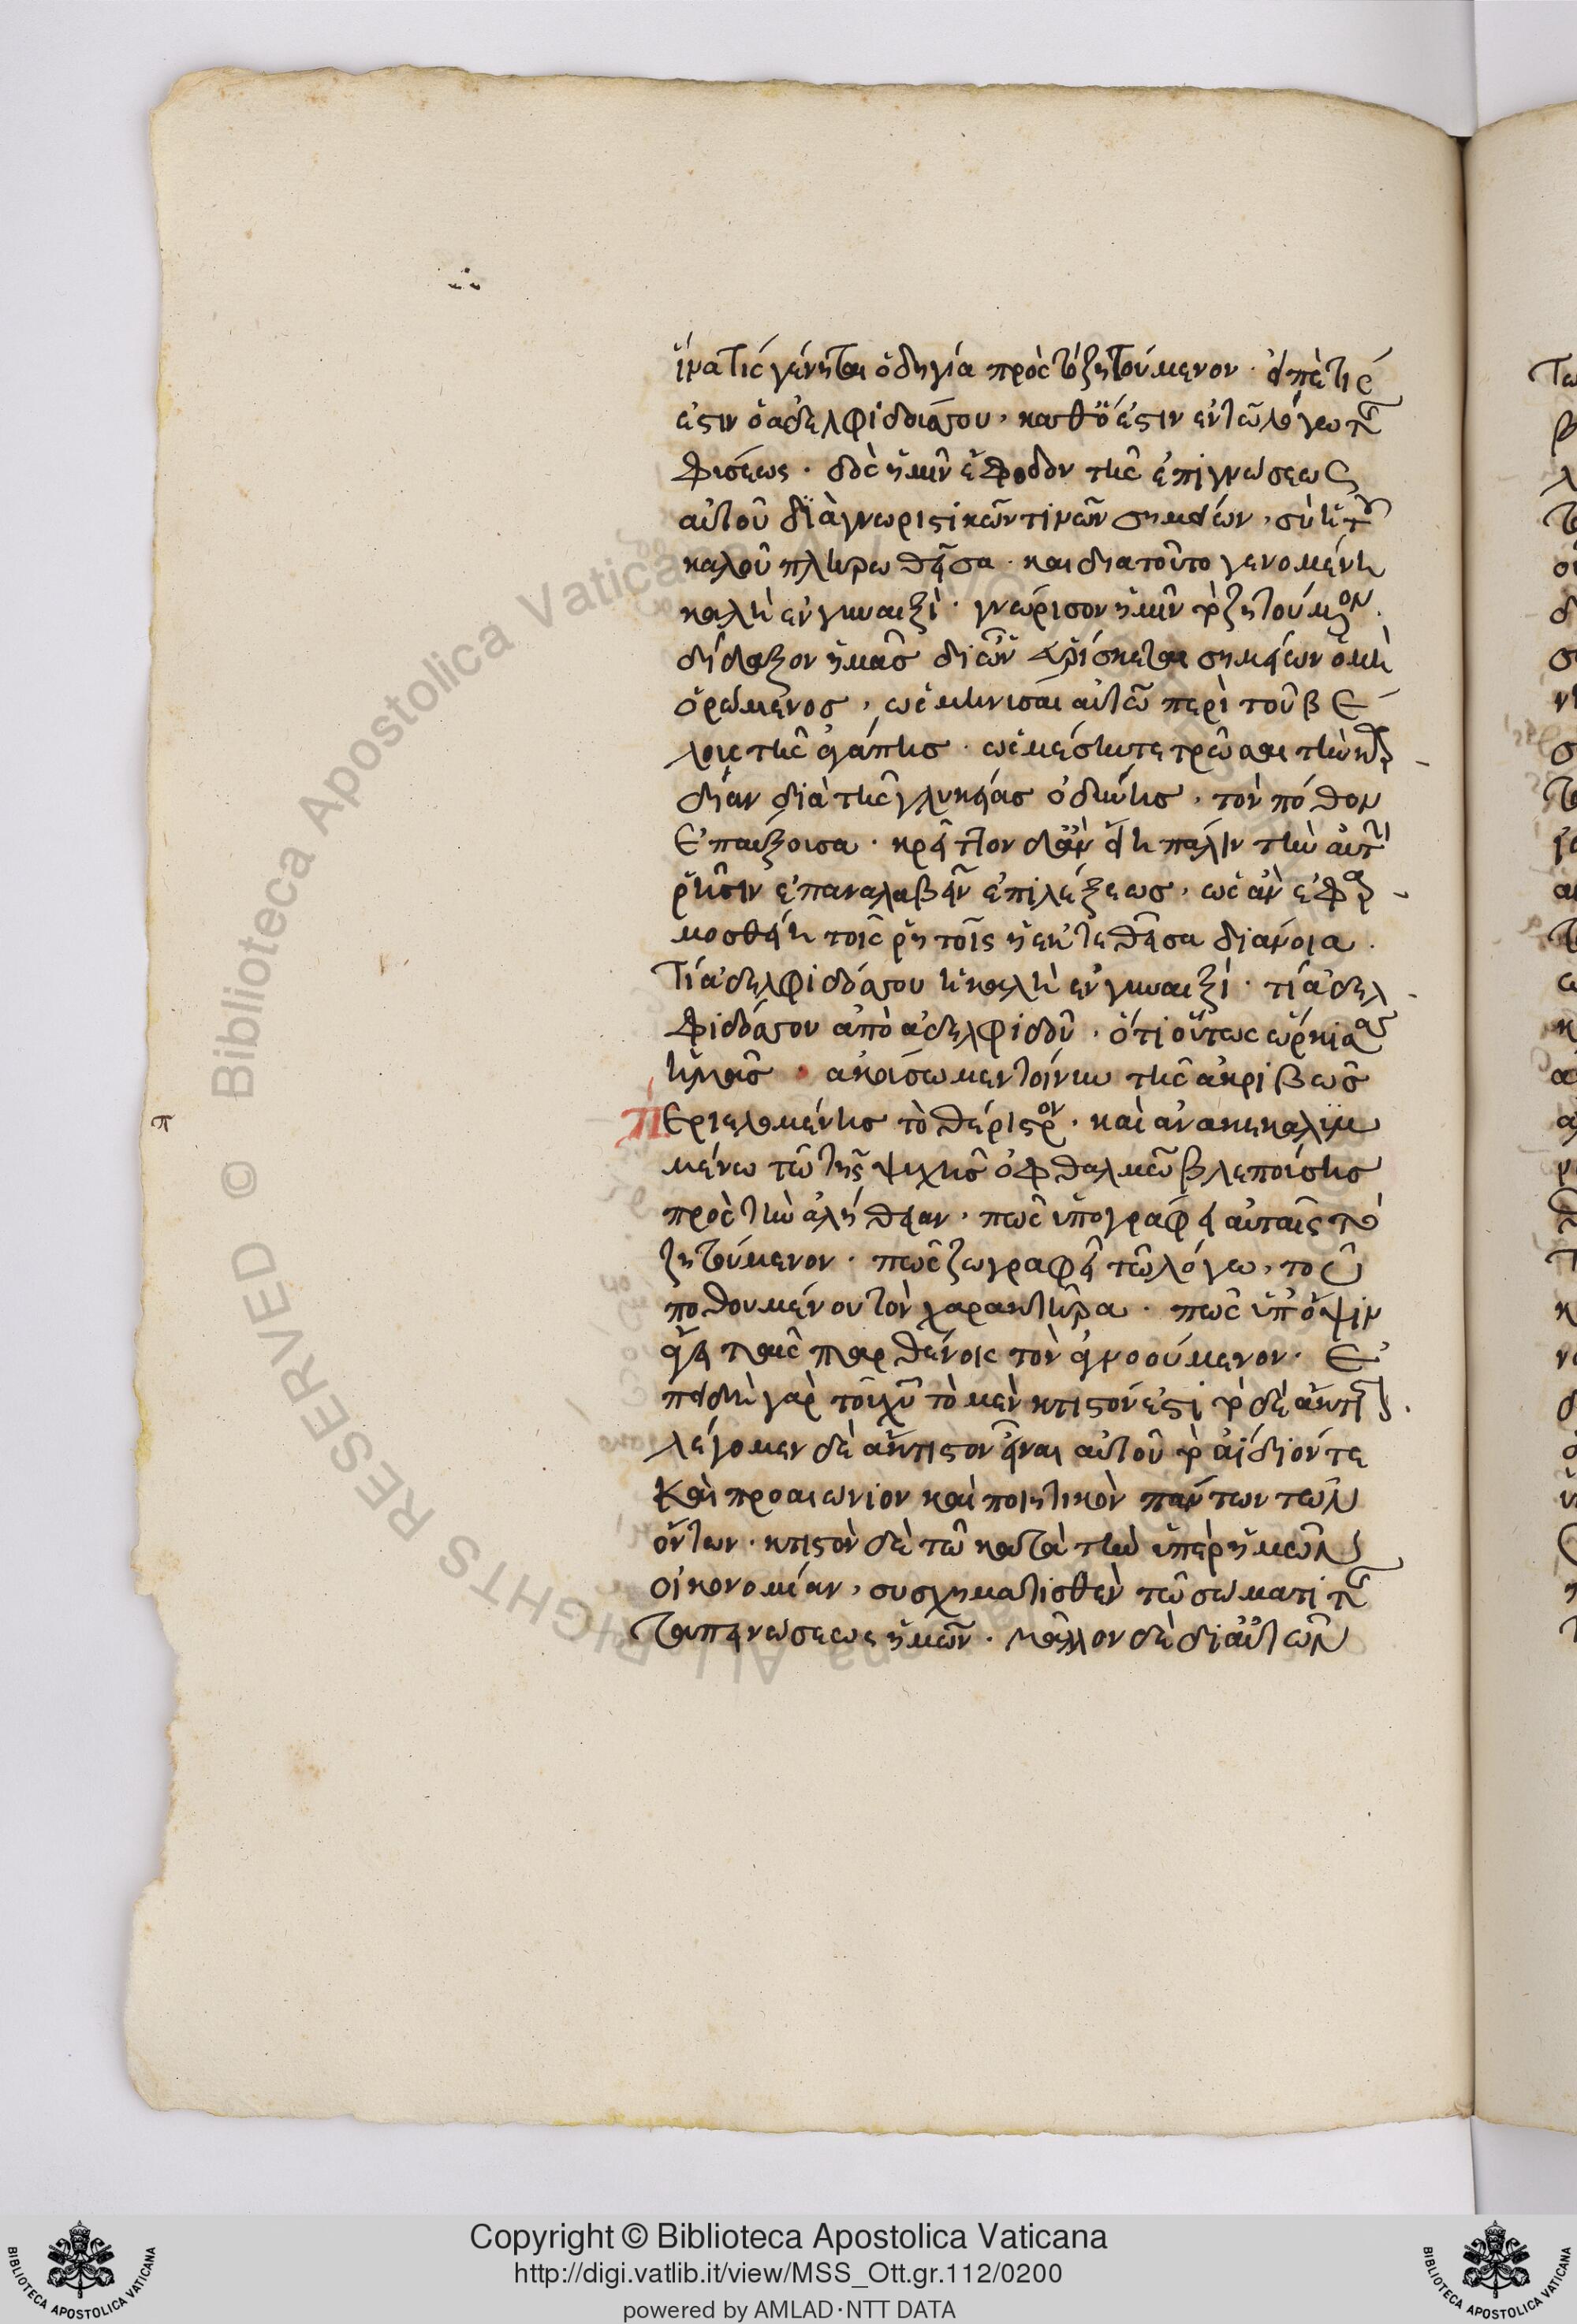 ἵνα τὶς γένηται ὁδηγία πρὸς τὸ ζητούμενον. εἰπὲ τί
ἐστιν ὁ ἀδελφιδός σου, καθὸ ἐστιν ἐν τῶ λόγω τῆς
φύσεως. δὸς ἡμῖν ἔφοδον τῆς ἐπιγνώσεως
αὐτοῦ διὰ γνωριστικῶν τινῶν σημείων, σὺ ἡ τοῦ
καλοῦ πληρωθεῖσα. και δια τοῦτο γενομένη
καλὴ ἐν γυναιξὶ. γνώρισον ἡμῖν τὸ ζητούμενον.
δίδαξον ἡμᾶς δι ὧν εὑρίσκεται σημείων ὁ μὴ
ὁρώμενος, ὡς μηνύσαι αὐτῶ περὶ τοῦ βέ
λους τῆς ἀγάπης. ὡς μέση τε τρωθεῖσα τὴν καρ-
δίαν διὰ τῆς γλυκείας ὀδύνης, τὸν πόθον
ἐπαύξουσα. κρεῖττον δ' ἂν εἴη πάλιν τὴν αὐτὴν
ῥῆσιν ἐπαναλαβεῖν ἐπιλέξεως, ὡς ἂν ἐφαρ-
μοσθείη τοῖς ῥητοῖς ἡ ἐκτεθεῖσα διάνοια.
Τί ἀδελφιδός σου ἡ καλὴ ἐν γυναιξί. τί ἀδελ-
φιδός σου ἀπὸ ἀδελφιδοῦ, ὅτι οὕτως ὥρκισας
ἡμᾶς. ἀκούσωμεν τοίνυν τῆς ἀκριβῶς
Περιελομένης τὸ θέριστρον. καὶ ἀνακεκαλυμ
μένω τῶ τῆς ψυχῆς ὀφθαλμῶ βλεπούσης
πρὸς τὴν ἀλήθειαν, πῶς ὑπογράφει αὐταῖς τὸ
ζητούμενον. πῶς ζωγραφεῖ τῶ λόγω, τοῦ
ποθουμένου τὸν χαρακτῆρα. πῶς ὑπ' ὄψιν
ἄγει ταῖς παρθένοις τὸν ἀγνοούμενον. Ἐ
πειδὴ γὰρ τοῦ χυ τὸ μὲν κτιστόν ἐστι τὸ δὲ ἄκτιστον.
λέγομεν δὲ ἄκτιστον εἶναι αὐτοῦ τὸ ἀίδιόν τε
Καὶ προαιώνιον καὶ ποιητικὸν πάντων τῶν
ὄντων. κτιστὸν δὲ τῶ κατὰ τὴν ὑπὲρ ἡμῶν
οἰκονομίαν, συσχηματισθὲν τῶ σώματι τῆς
ταπεινώσεως ἡμῶν. μᾶλλον δὲ δι αὐτῶν
π
Copyright © Biblioteca Apostolica Vaticana
http://digi.vatlib.it/view/MSS_Ott.gr.112/0200
powered by AMLAD·NTT DATA